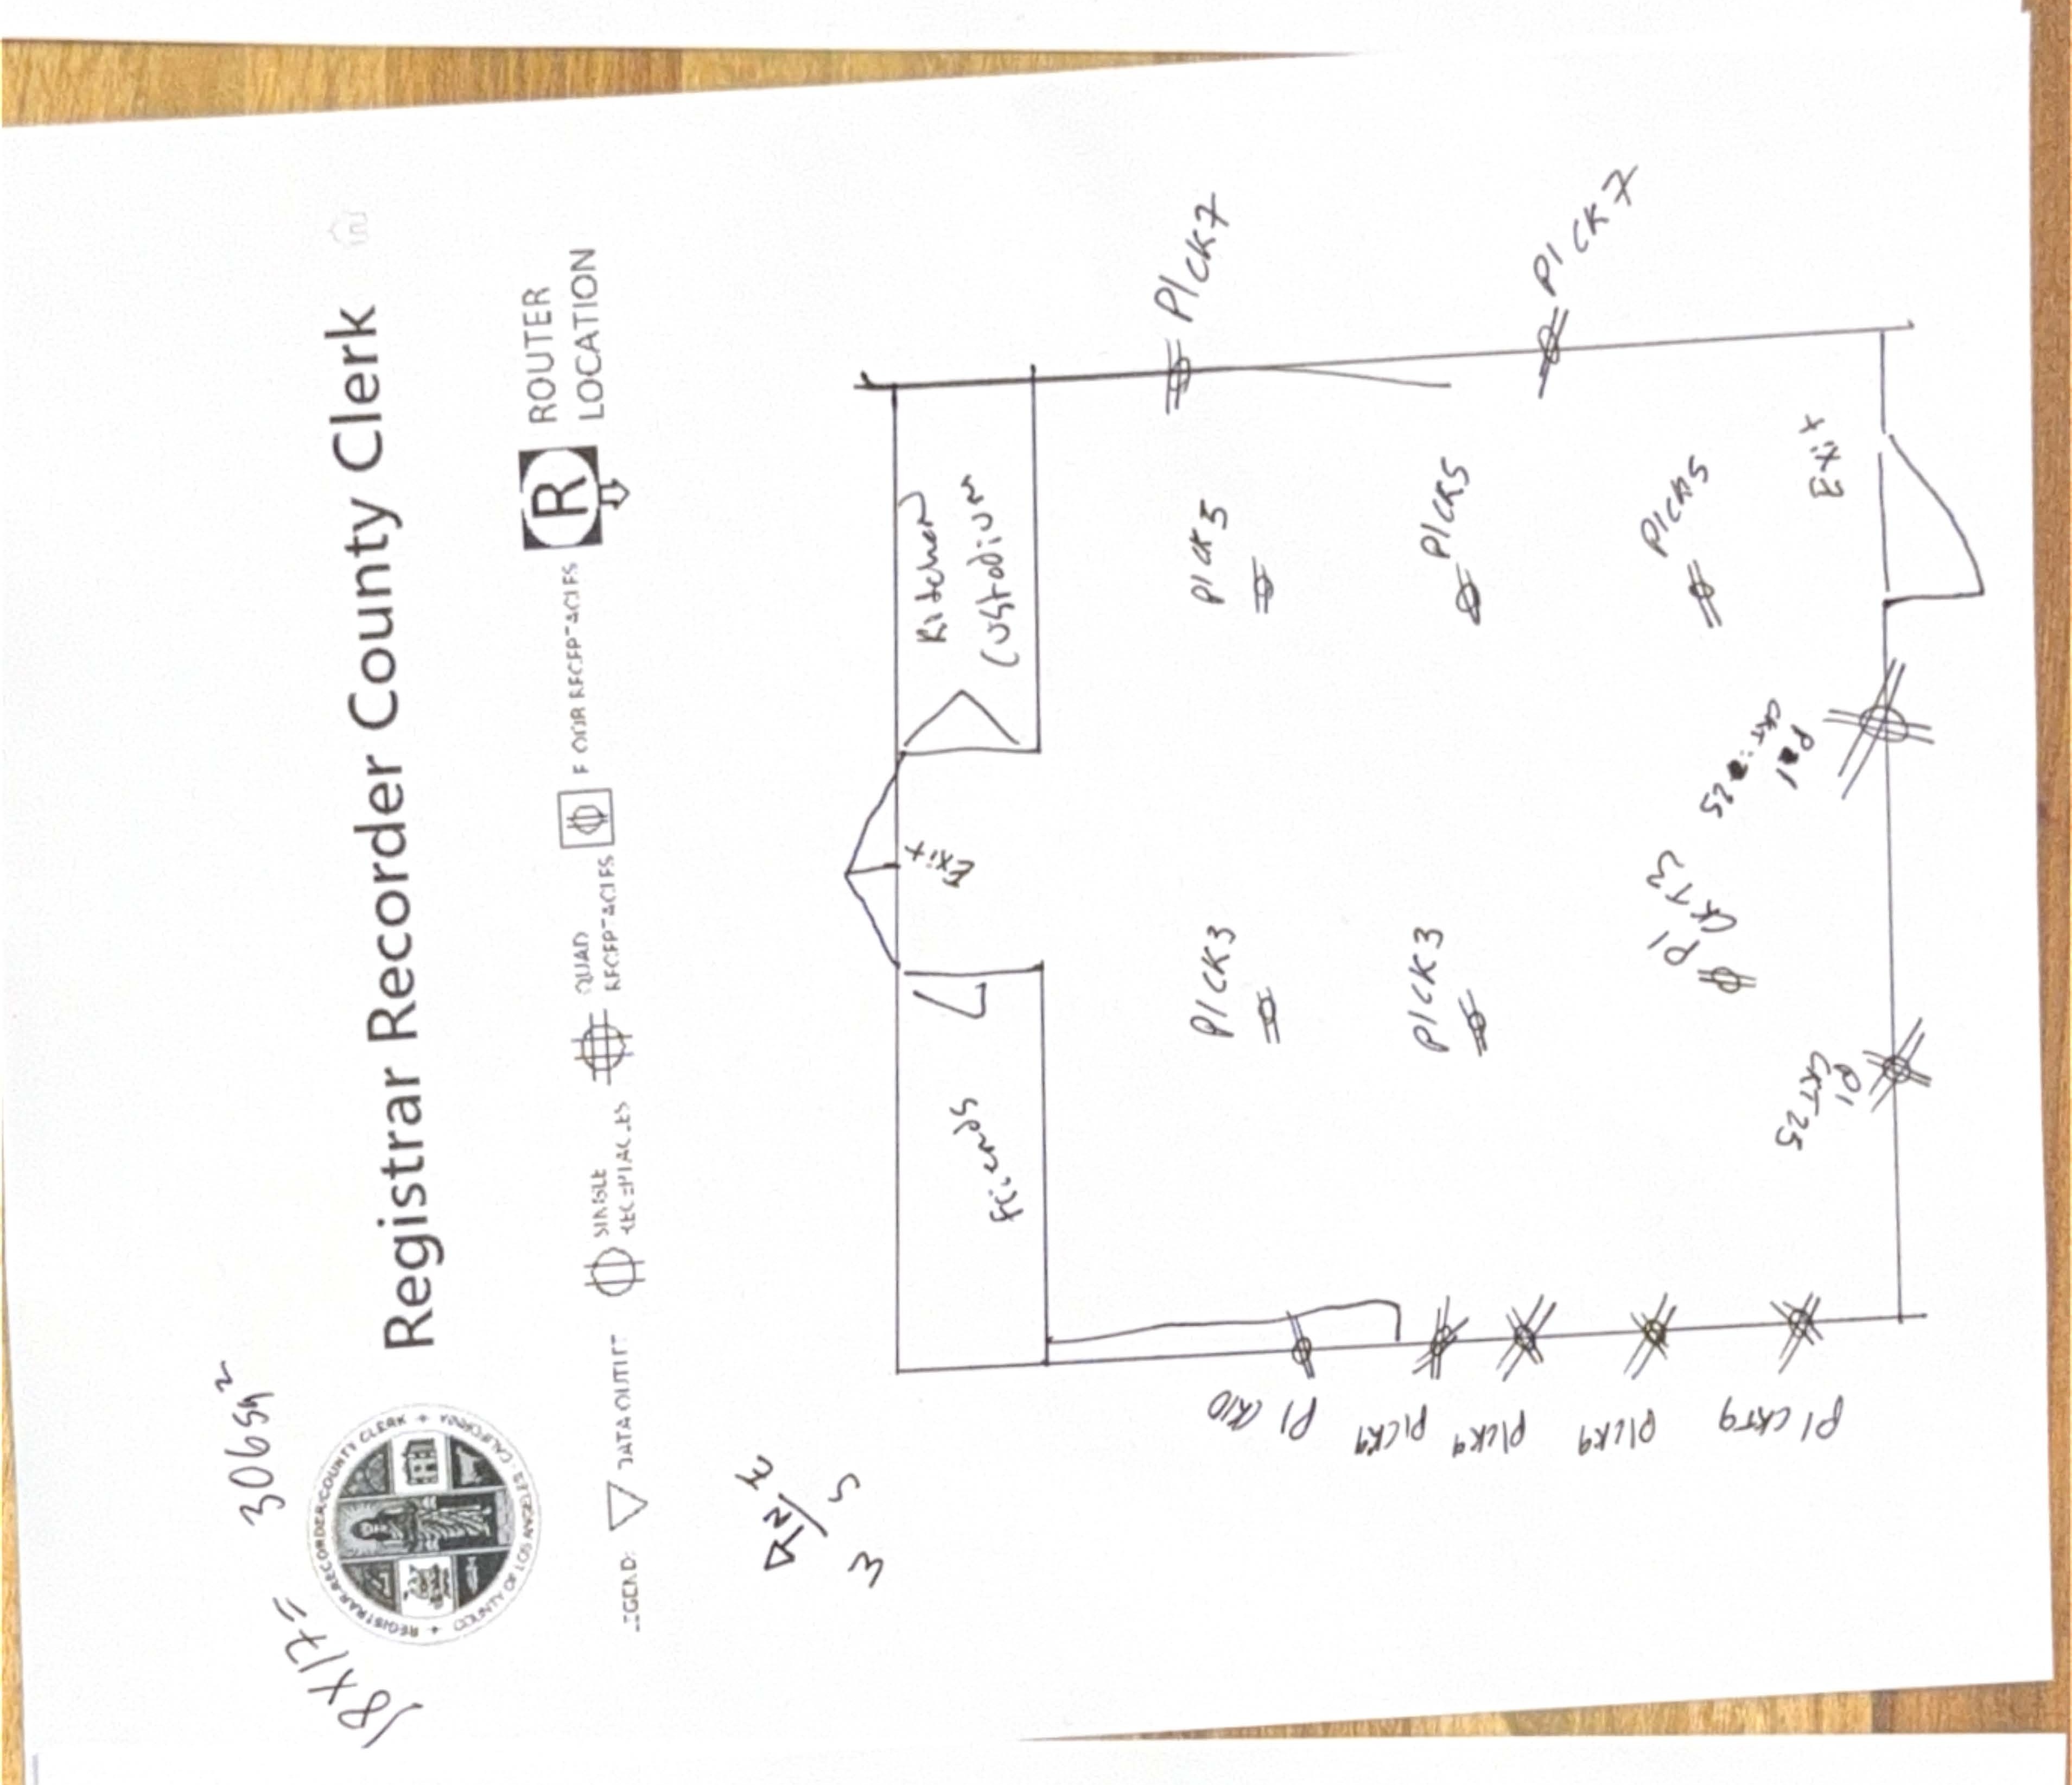 18X17=
306 Sq2
REGISTRAR-RECORDER/COUNTY CLERK + COUNTY OF LOS ANGELES - CALIFORNIA +
Registrar Recorder County Clerk
DATA OUTLET
SINGLE
RECEPTACLES
QUAD
RECEPTACLES
RECEPTACLES
R
ROUTER
LOCATION
N
E
S
W
Friends
Exit
Kitchen
Custodium
P1 CK7
P1 CK 7
P1 CK 5
P1 CK5
P1 CK5
Exit
P1 CK3
P1 CK3
P1
CKT3
P1
CKT 25
P1 CK10
P1 CK9
P1 CK9
P1 CK9
P1 CKT9